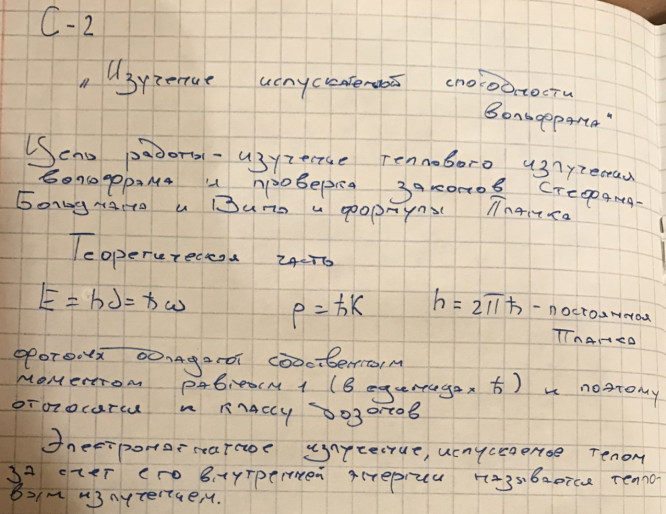 С-2
„Изучение испускательной способности
вольфрама"
Цель работы - изучение теплового излучения
вольфрама и проверка законов Стефана-
Больцмана и Вина и формулы Планка
Теоретическая часть
E = hν = ħω p = ħK h = 2πħ - постоянная
Планка
фотоны обладают собственным
моментом равным 1 (в единицах ħ) и поэтому
относятся к классу бозонов
Электромагнитное излучение, испускаемое телом
за счет его внутренней энергии называется тепло-
вым излучением.